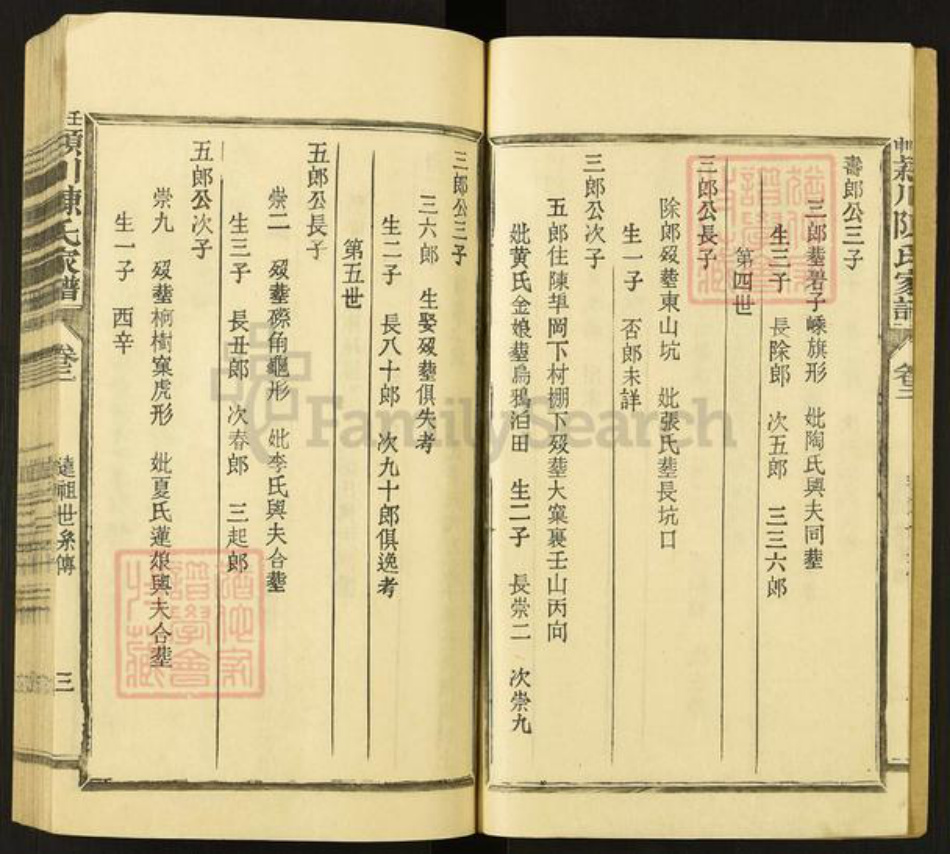 壽郎公三子
三郎塟磜子嵊旗形 妣陶氏與夫同塟
生三子 長除郎 次五郎 三三六郎
第四世
三郎公長子
除郎歿塟東山坑 妣張氏塟長坑口
生一子 否郎未詳
三郎公次子
五郎住陳
岡下村棚下歿塟大窠裏壬山丙向
妣黄氏金娘塟烏鴉泊田 生二子 長崇二 次崇九
三郎公三子
三六郎 生娶歿塟俱失考
生二子 長八十郎 次九十郎俱逸考
第五世
五郎公長子
崇二 歿塟磜角龜形 妣李氏與夫合塟
生三子 長丑郎 次春郎 三起郎
五郎公次子
崇九 歿塟桐樹窠虎形 妣夏氏蓮娘與夫合塟
生一子 西辛
潁川陳氏家譜 卷三 遠祖世系傳 三
FamilySearch